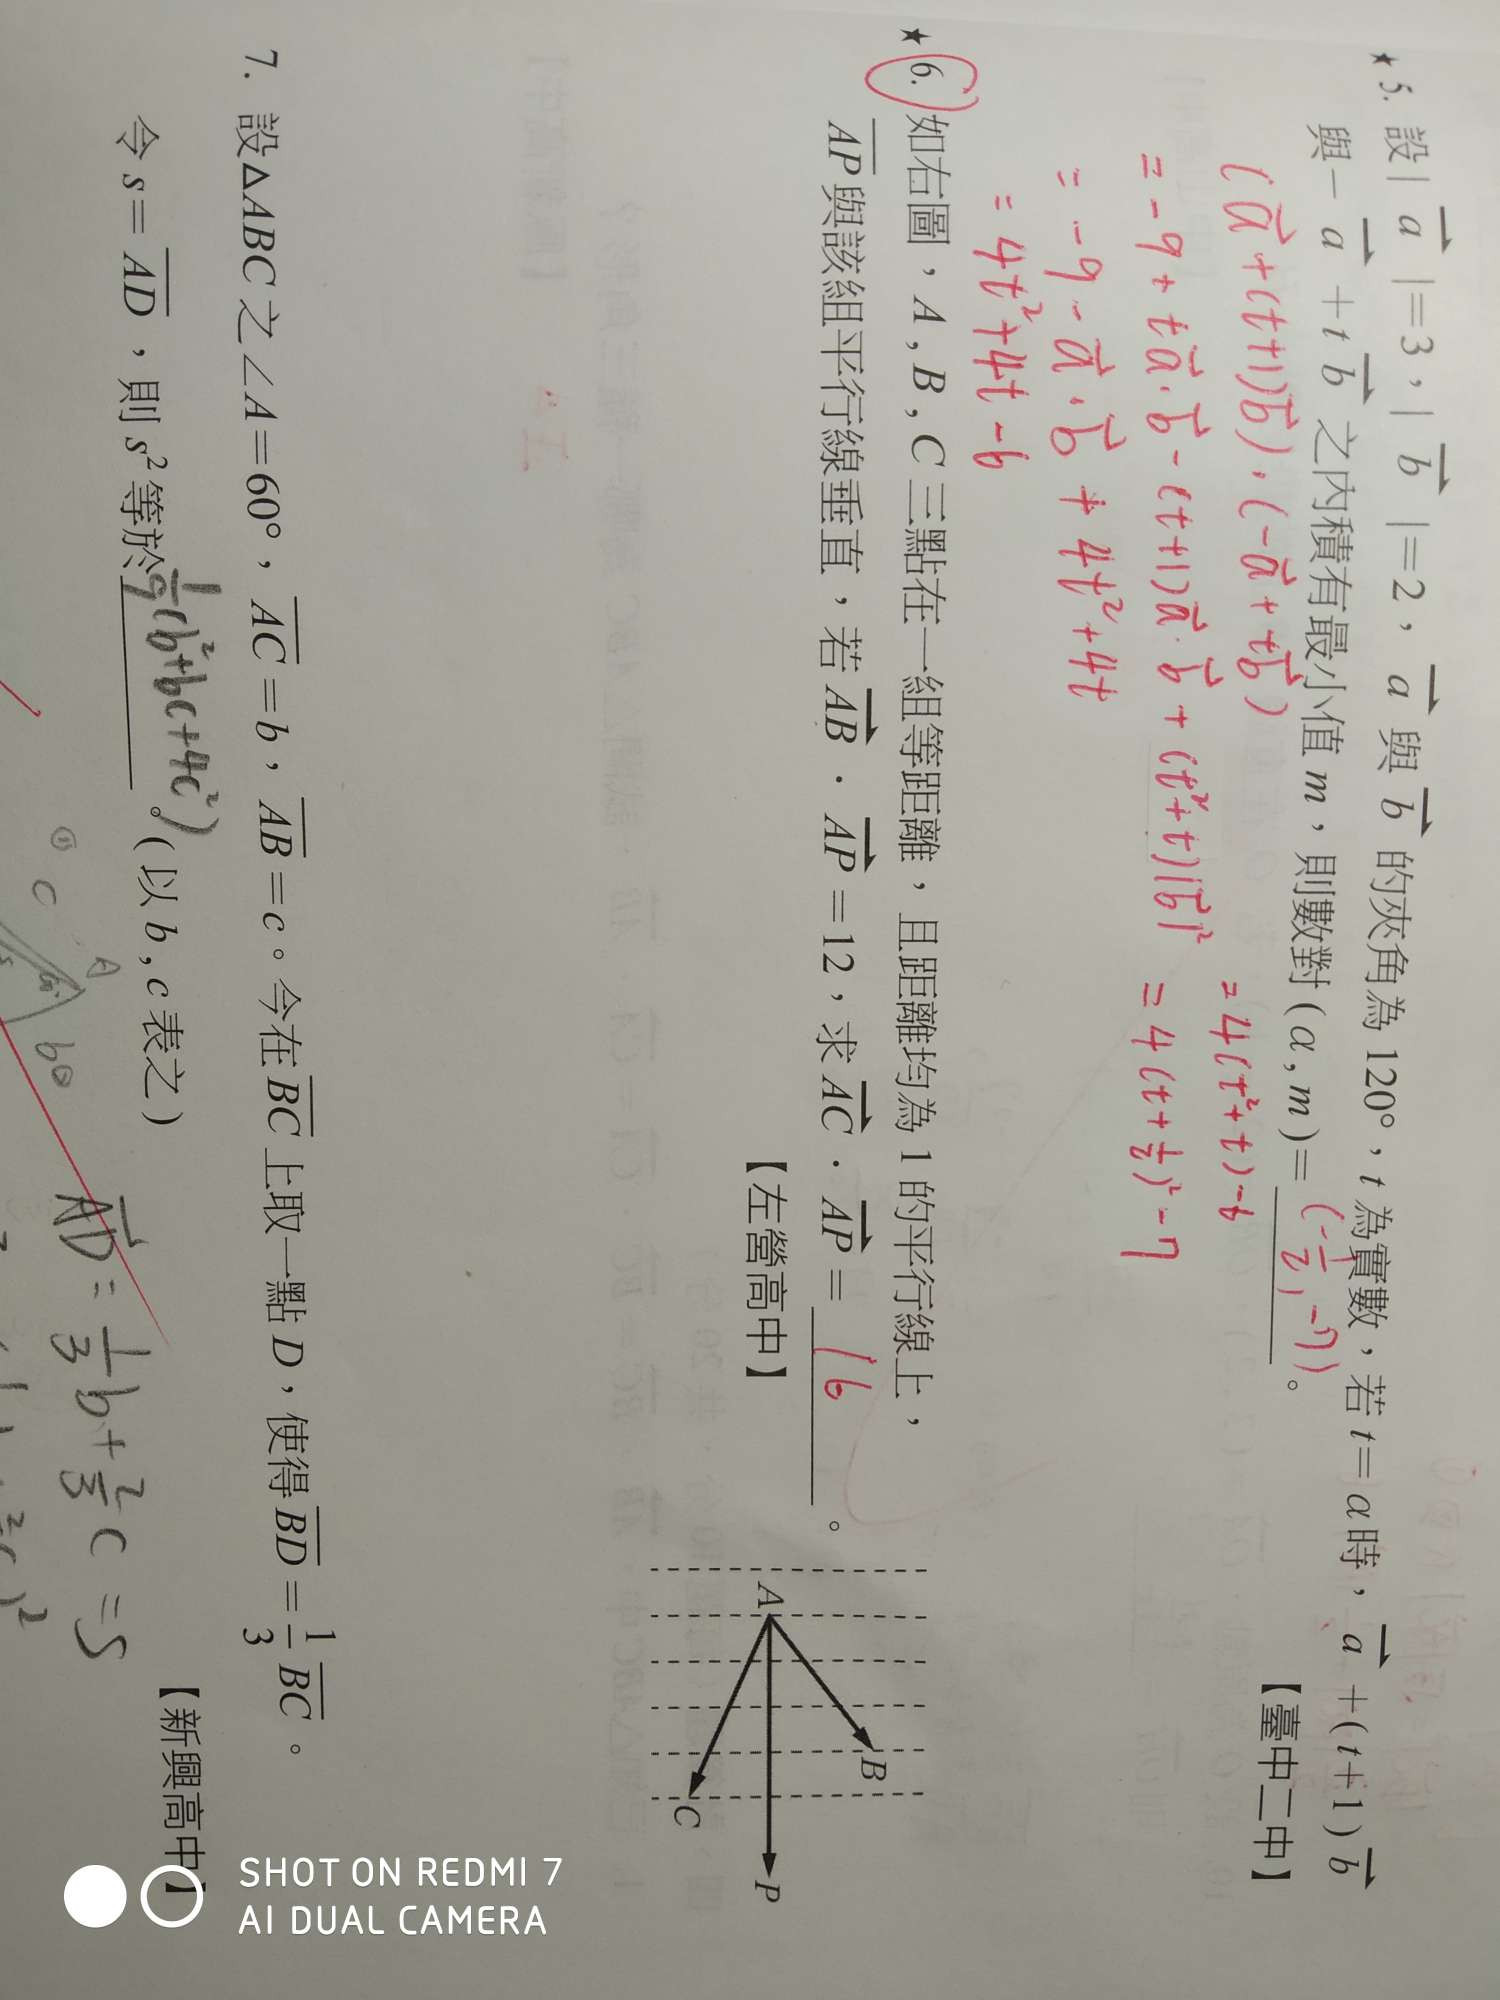 ★5. 設|a|=3，|b|=2，a與b的夾角為120°，t為實數，若t=α時，a+(t+1)b
與-a+tb之內積有最小值m，則數對(α,m)=(-1/2,-7)。
【臺中二中】
(a+(t+1)b)·(-a+tb)
=-9+ta·b-(t+1)a·b+(t²+t)|b|²
=-9-a·b+4t²+4t
=4t²+4t-6
=4(t²+t)-6
=4(t+1/2)²-7
★6. 如右圖，A,B,C三點在一組等距離，且距離均為1的平行線上，
AP與該組平行線垂直，若AB·AP=12，求AC·AP=16。
【左營高中】
A
B
C
P
7. 設△ABC之∠A=60°，AC=b，AB=c。今在BC上取一點D，使得BD=1/3BC。
令s=AD，則s²等於1/9(b²+bc+4c²)。(以b,c表之)
【新興高中】
C
A
AD=1/3b+2/3c=s
SHOT ON REDMI 7
AI DUAL CAMERA